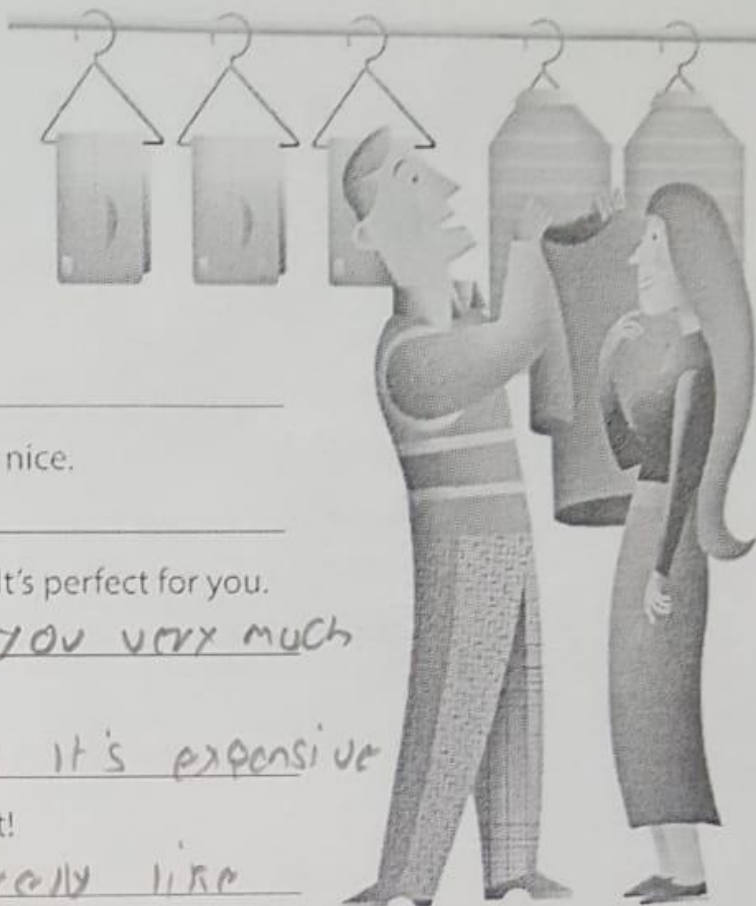 nice.
It's perfect for you.
you very much
it's expensive
t!
really like